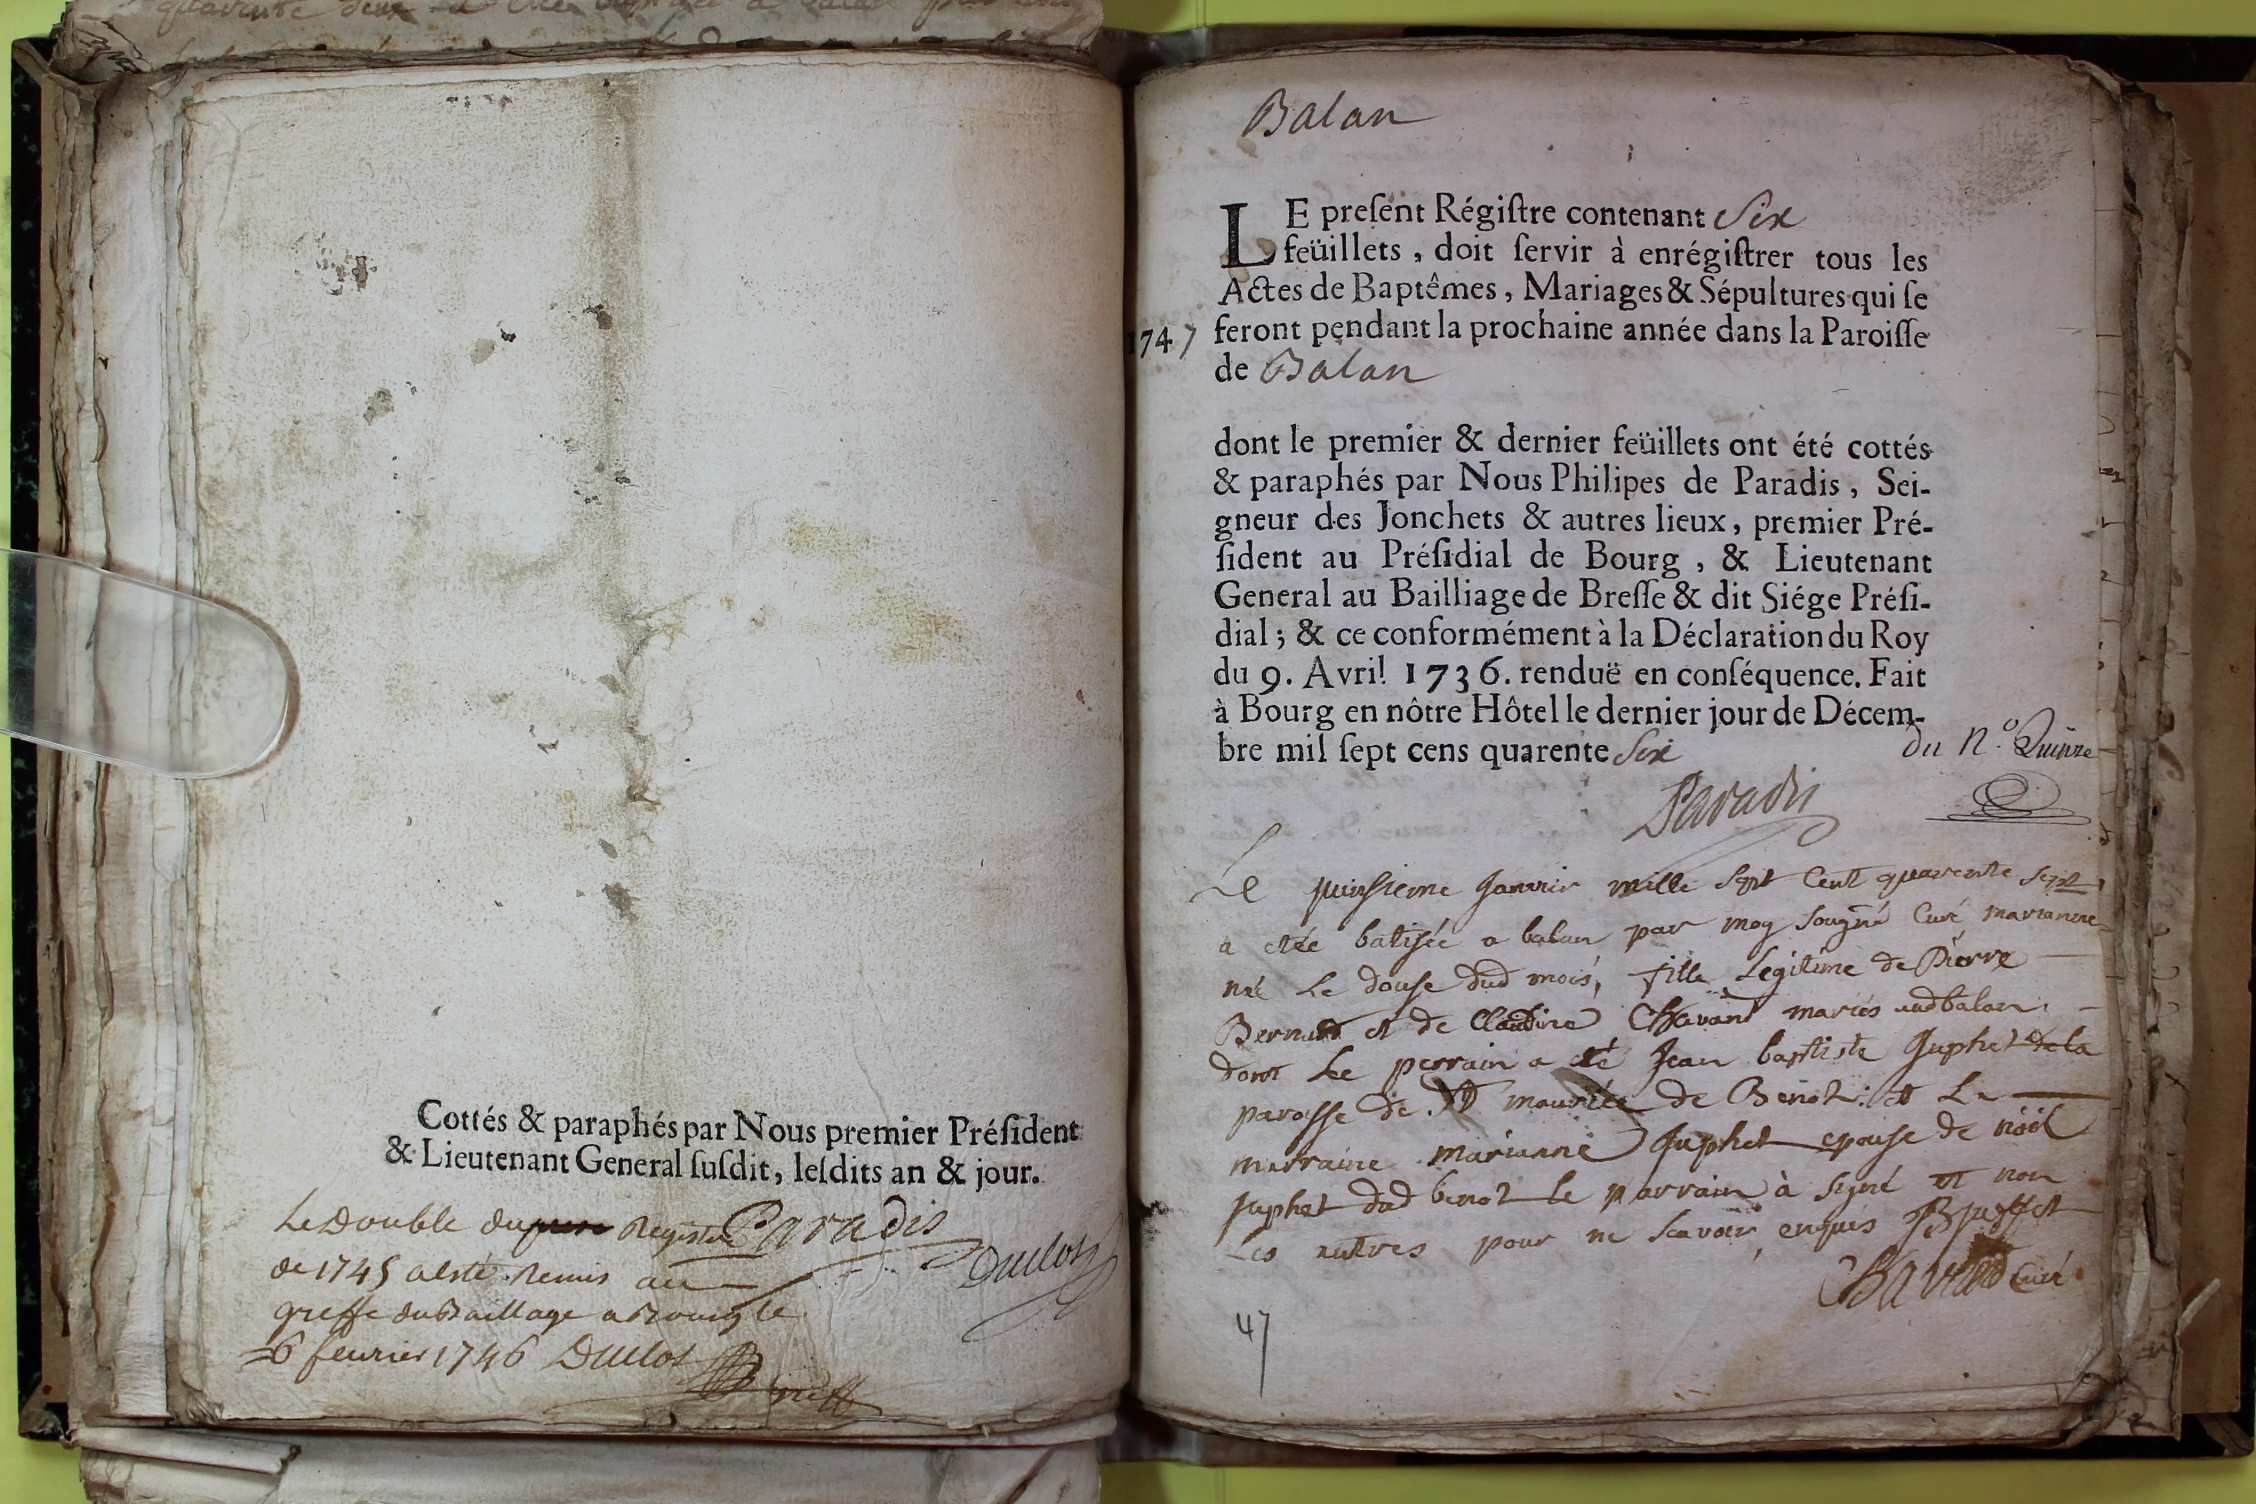 Cottés & paraphés par Nous premier Présidentˑ
& Lieutenant General ſuſdit, leſdits an & jour.
Le Double du Registre Paradis
de 1745 a esté Remis au Duclos
greffe du Baillage a Bourg le
6 feurier 1746 Duclos
greff
Balan
LE preſent Régiſtre contenant Six
feüillets, doit ſervir à enrégiſtrer tous les
Actes de Baptêmes, Mariages & Sépultures qui ſe
1747 feront pendant la prochaine année dans la Paroiſſe
de Balan
dont le premier & dernier feüillets ont été cottés
& paraphés par Nous Philipes de Paradis, Sei-
gneur des Jonchets & autres lieux, premier Pré-
ſident au Préſidial de Bourg, & Lieutenant
General au Bailliage de Breſſe & dit Siége Préſi-
dial; & ce conformément à la Déclaration du Roy
du 9. Avril 1736. renduë en conſéquence. Fait
à Bourg en nôtre Hôtel le dernier jour de Décem-
bre mil ſept cens quarente Six du N.º Quinze
Paradis
Le janvier mille sept cent quarente sept
a etée batisée a balan par moy sougné Curé marianne
née le douse dud mois, fille legitime de Pierre
et de Claudine Chavant mariés aud balan
dont Le perrain a eté Jean baptiste Juphet de la
paroisse de St maurice de Benot: et La
marraine marianne Juphet epouse de nöel
Juphet dud benot le parrain à signé et non
Les autres pour ne scavoir enquis
Chavard Curé
47